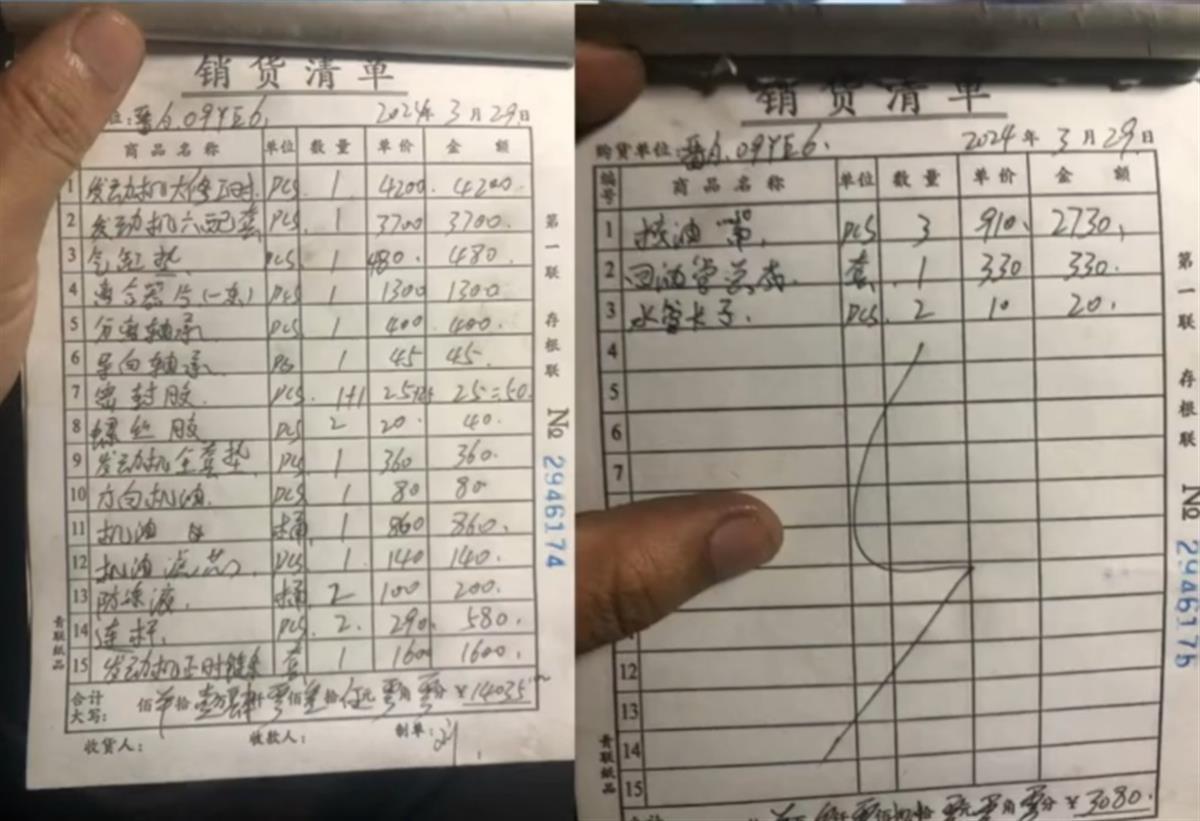 销货清单
位：晋A.09YE6. 2024年3月29日
商品名称 单位 数量 单价 金额
1 发动机大修工时. PCS. 1 4200. 4200.
2 发动机六配套 PCS. 1 3700. 3700.
3 气缸垫. PCS. 1 480. 480.
4 离合器片(一套) PCS 1 1300 1300.
5 分离轴承 PCS 1 400. 400.
6 导向轴承 PCS 1 45 45.
7 密封胶. PCS. 1+1 25 25=50.
8 螺丝胶 PCS 2 20. 40.
9 发动机全套垫. PCS. 1 360. 360.
10 方向机油. PCS. 1 80 80
11 机油 桶. 1 860 860.
12 机油滤芯. PCS 1. 140 140.
13 防冻液. 桶. 2 100 200.
14 连杆. PCS. 2. 290. 580.
15 发动机正时链条 套 1 1600 1600.
合计
大写： 佰 拾壹万肆仟零佰叁拾伍元零角零分 ￥14035
收货人： 收款人： 制单：刘
第一联 存根联 № 2946174
青联纸品
销货清单
购货单位：晋A.09YE6. 2024年3月29日
编号 商品名称 单位 数量 单价 金额
1 油 PCS 3 910. 2730.
2 回油管总成. 套. 1 330 330.
3 水管卡子. PCS. 2 10 20.
4
5
6
7
12
13
14
15
佰 拾 元零角零分 ￥3080.
第一联 存根联 № 2946175
青联纸品